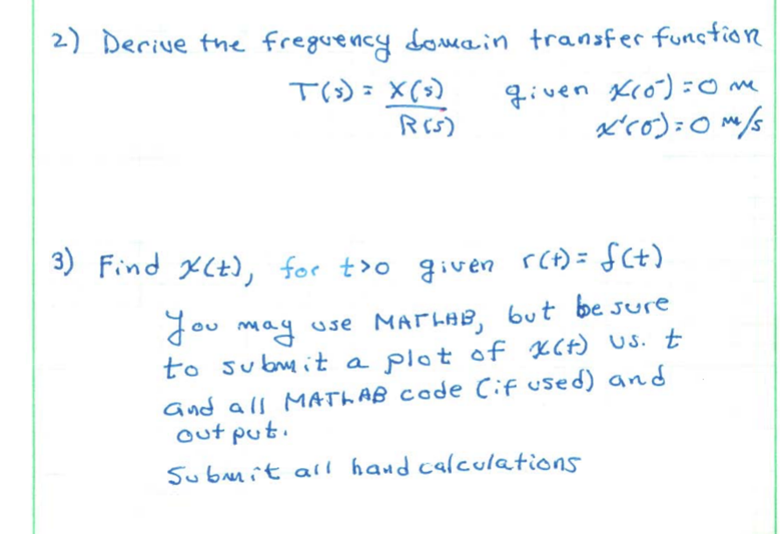 2) Derive the frequency domain transfer function
T(s) = X(s) given x(0⁻) = 0 m
R(s) x'(0⁻) = 0 m/s
3) Find x(t), for t>0 given r(t) = δ(t)
You may use MATLAB, but be sure
to submit a plot of x(t) vs. t
and all MATLAB code (if used) and
output.
Submit all hand calculations